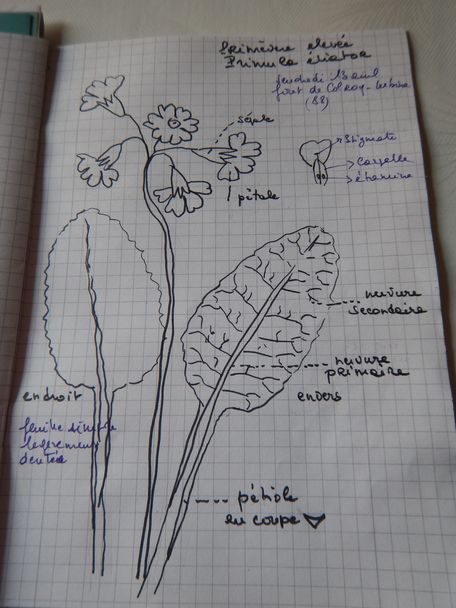 Primevère elevée
Primula élatior
Vendredi 13 avril
foret de Colroy-
(88)
sépale
stigmate
Carpelle
étamine
pétale
nervure
secondaire
nervure
primaire
endroit
envers
feuille simple
legerement
dentée
pétiole
en coupe